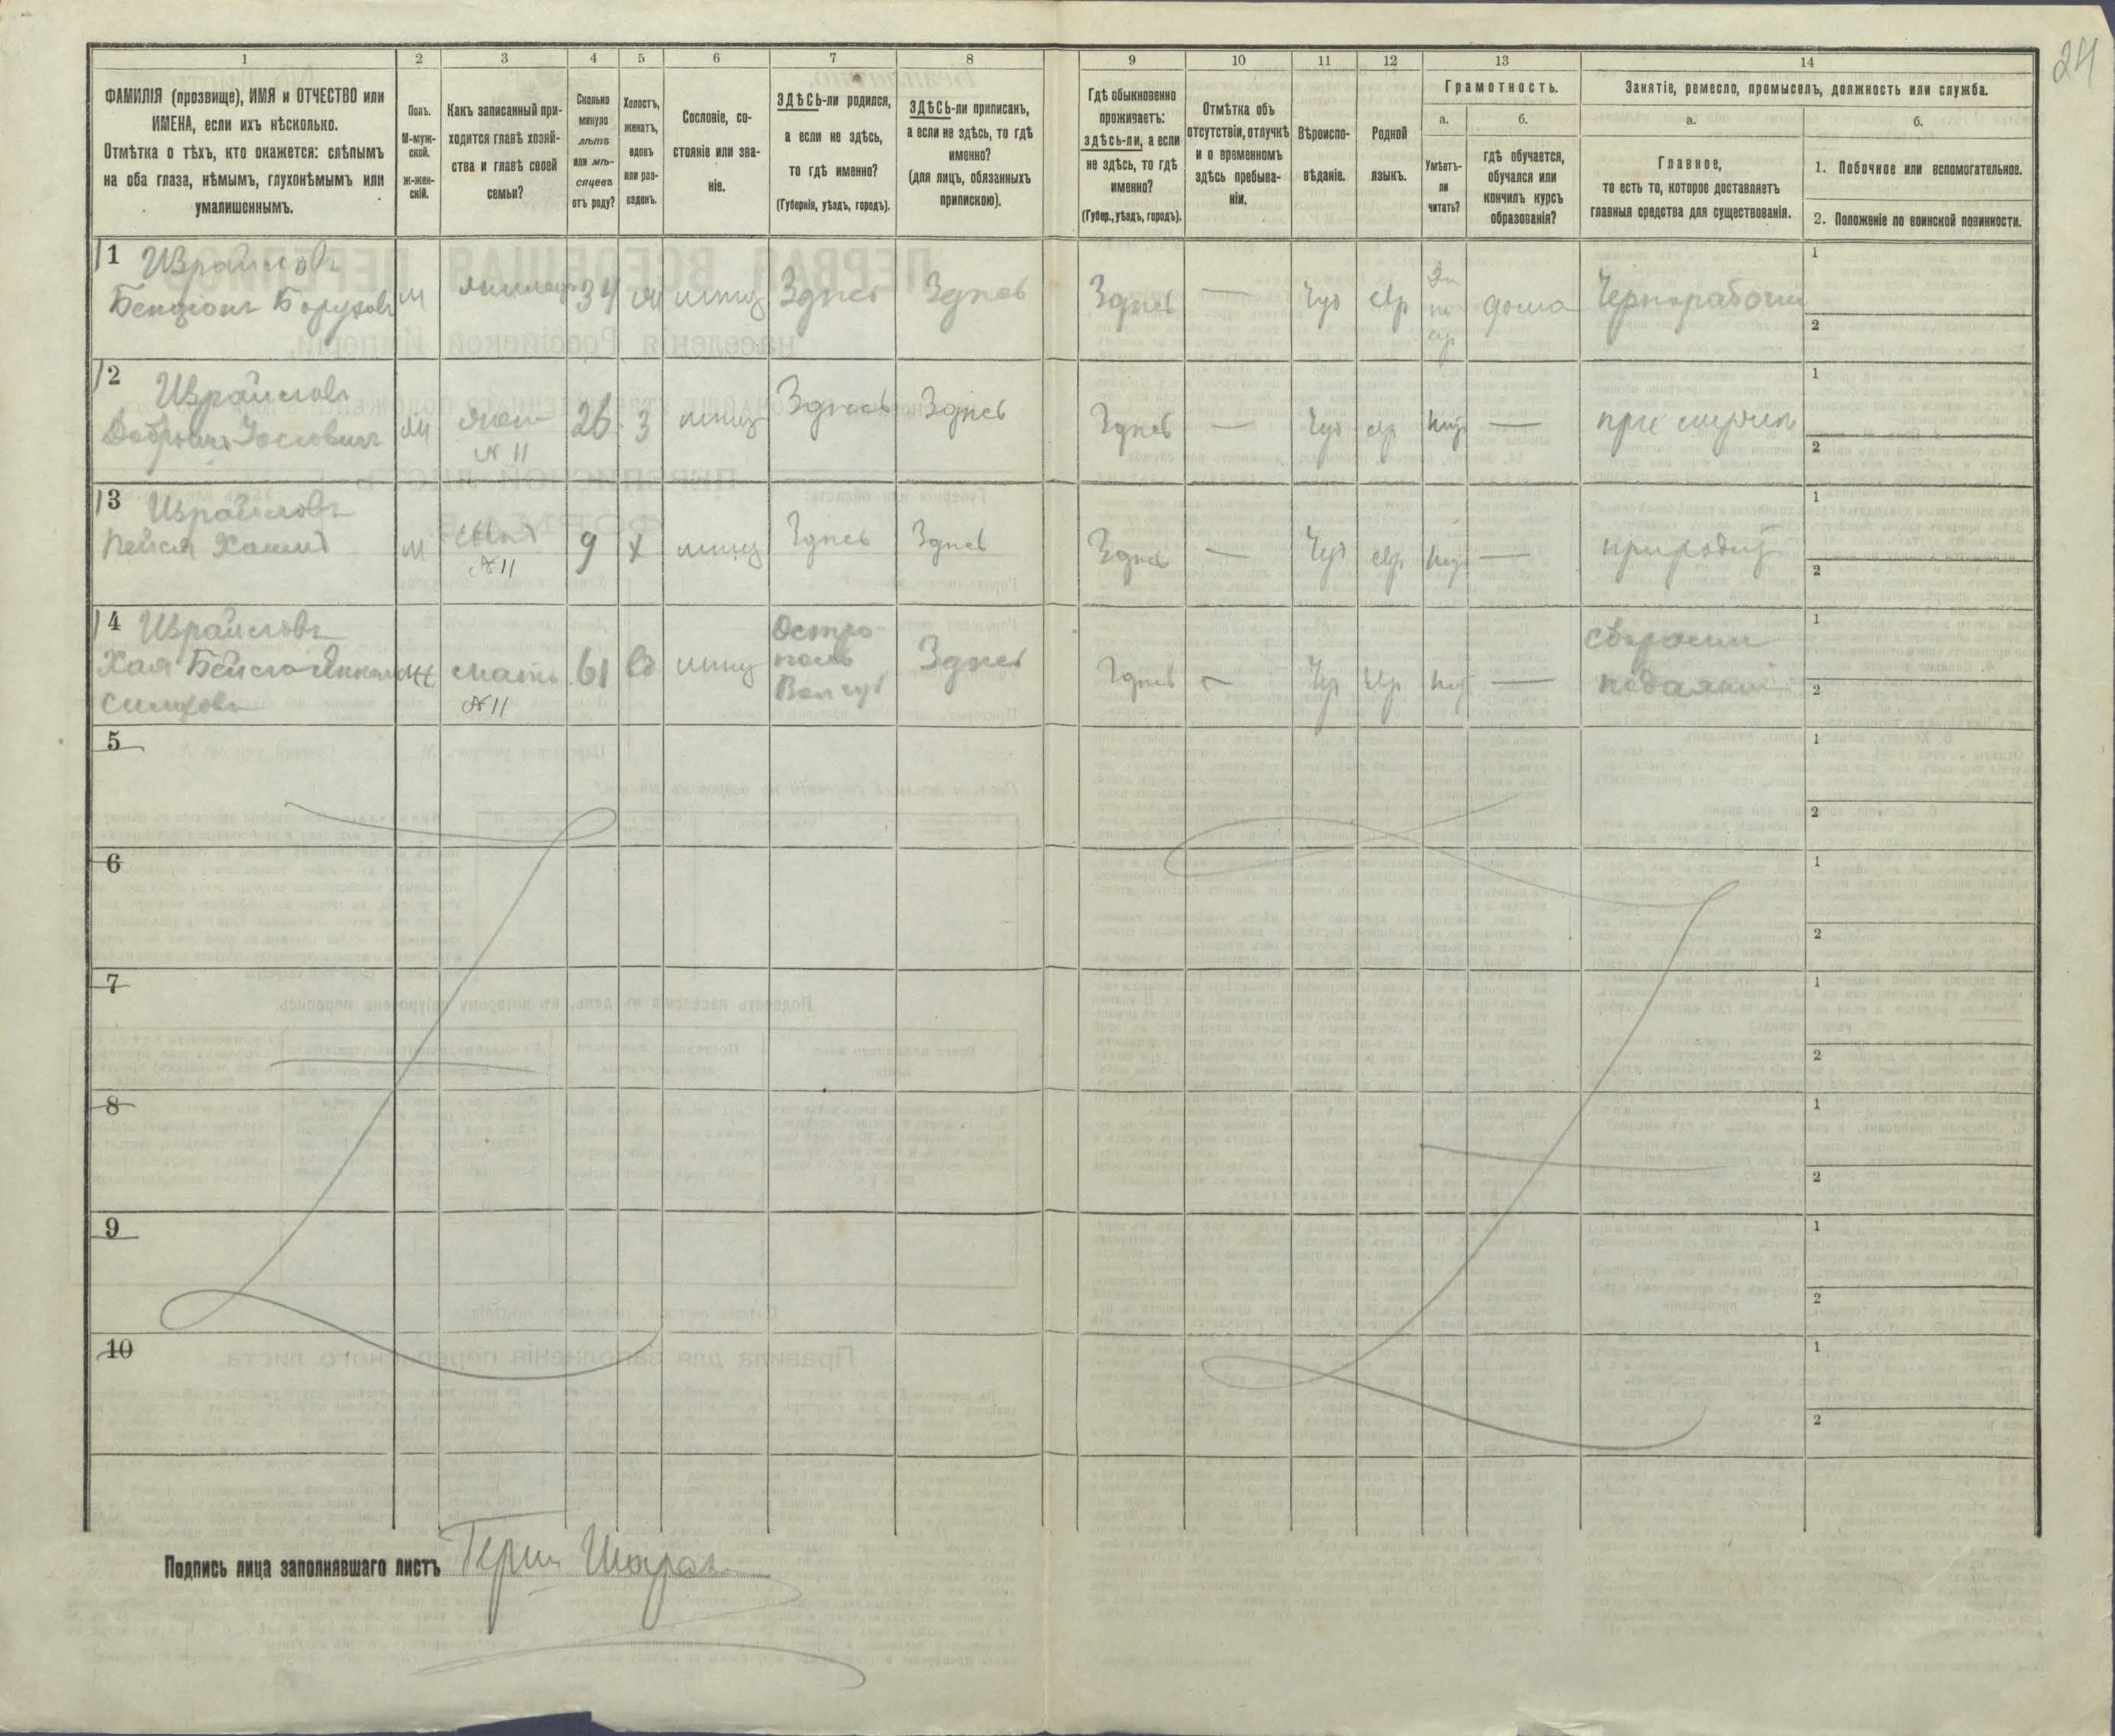 24
1 2 3 4 5 6 7 8 9 10 11 12 13 14
ФАМИЛІЯ (прозвище), ИМЯ и ОТЧЕСТВО или
ИМЕНА, если ихъ нѣсколько.
Отмѣтка о тѣхъ, кто окажется: слѣпымъ
на оба глаза, нѣмымъ, глухонѣмымъ или
умалишеннымъ.
Полъ.
М-муж-
ской.
Ж-жен-
скій.
Какъ записанный при-
ходится главѣ хозяй-
ства и главѣ своей
семьи?
Сколько
минуло
лѣтъ
или мѣ-
сяцевъ
отъ роду?
Холостъ,
женатъ,
вдовъ
или раз-
веденъ.
Сословіе, со-
стояніе или зва-
ніе.
ЗДѢСЬ-ли родился,
а если не здѣсь,
то гдѣ именно?
(Губернія, уѣздъ, городъ).
ЗДѢСЬ-ли приписанъ,
а если не здѣсь, то гдѣ
именно?
(для лицъ, обязанныхъ
припискою).
Гдѣ обыкновенно
проживаетъ:
здѣсь-ли, а если
не здѣсь, то гдѣ
именно?
(Губер., уѣздъ, городъ).
Отмѣтка объ
отсутствіи, отлучкѣ
и о временномъ
здѣсь пребыва-
ніи.
Вѣроиспо-
вѣданіе.
Родной
языкъ.
Грамотность.
а.
Умѣетъ-
ли
читать?
б.
гдѣ обучается,
обучался или
кончилъ курсъ
образованія?
Занятіе, ремесло, промыселъ, должность или служба.
а.
Главное,
то есть то, которое доставляетъ
главныя средства для существованія.
б.
1. Побочное или вспомогательное.
2. Положеніе по воинской повинности.
11 Израиловъ
Бенціонъ Боруховъ м 34 мѣщ Здѣсь Здѣсь Здѣсь — Іуд евр Да по евр дома Чернорабочий 1 2
12 Израиловъ
26 з мѣщ Здѣсь Здѣсь Здѣсь — Іуд евр нѣт — при мужѣ 1 2
№ 11
13 Израиловъ
Пейся м сынъ 9 х мѣщ Здѣсь Здѣсь Здѣсь — Іуд евр нѣт — 1 2
№ 11
14 Израиловъ
Хая Бейла ж мать 61 в мѣщ Остро-
поль
Здѣсь Здѣсь — Іуд евр нѣт — 1 2
№ 11
5 1 2
6 1 2
7 1 2
8 1 2
9 1 2
10 1 2
Подпись лица заполнявшаго листъ Герш